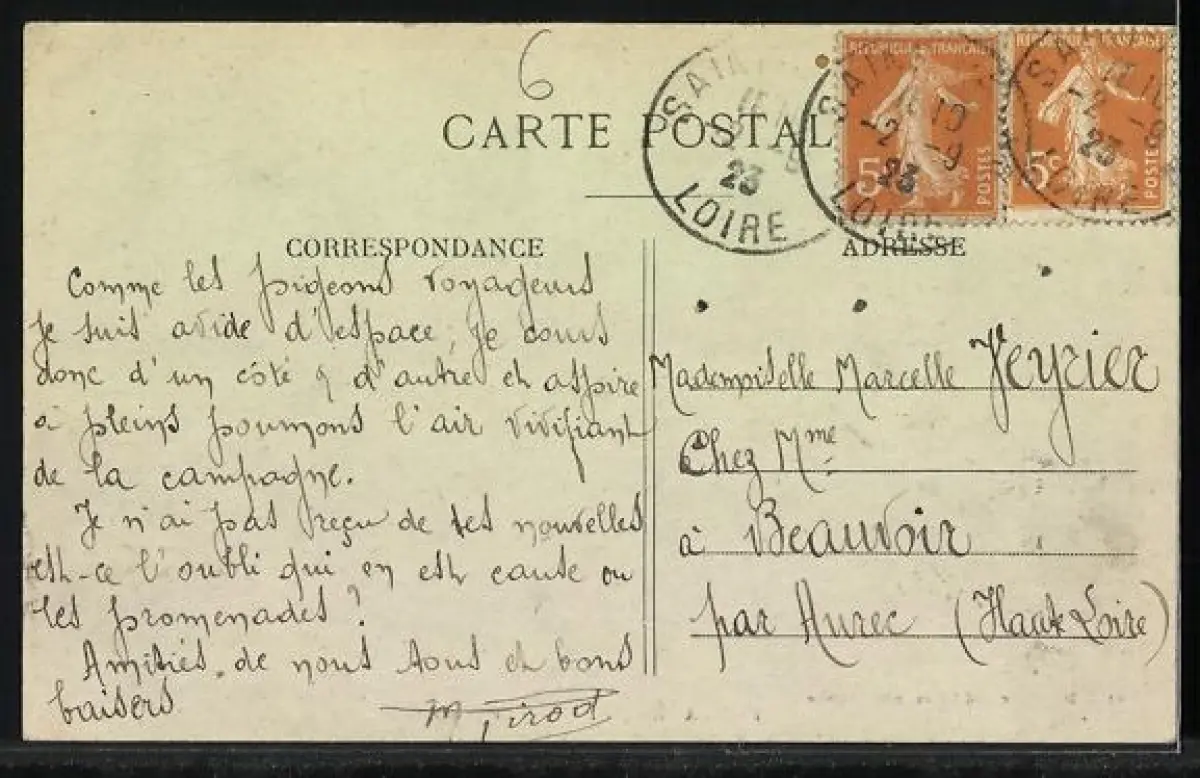 6
CARTE POSTAL
SAINT
23
LOIRE
REPUBLIQUE FRANÇAISE
5
POSTES
REPUBLIQUE FRANÇAISE
5c
POSTES
CORRESPONDANCE
Comme les pigeons voyageurs
je suis avide d'espace, je cours
donc d'un côté & d'autre et aspire
à pleins poumons l'air vivifiant
de la campagne.
Je n'ai pas reçu de tes nouvelles
est-ce l'oubli qui en est cause ou
les promenades?
Amitiés de nous tous et bons
baisers
ADRESSE
Mademoiselle Marcelle Veyrier
Chez Mme
à Beauvoir
par Aurec (Haute Loire)